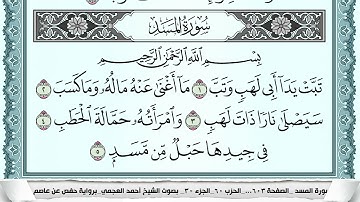 سُورَةُ المَسَدِ
بِسْمِ اللَّهِ الرَّحْمَٰنِ الرَّحِيمِ
تَبَّتْ يَدَآ أَبِى لَهَبٍ وَتَبَّ ١ مَآ أَغْنَىٰ عَنْهُ مَالُهُۥ وَمَا كَسَبَ ٢
سَيَصْلَىٰ نَارًا ذَاتَ لَهَبٍ ٣ وَٱمْرَأَتُهُۥ حَمَّالَةَ ٱلْحَطَبِ ٤
فِى جِيدِهَا حَبْلٌ مِّن مَّسَدٍۭ ٥
سورة المسد _الصفحة ٦٠٣... الحزب ٦٠_الجزء ٣٠_ بصوت الشيخ احمد العجمي_برواية حفص عن عاصم